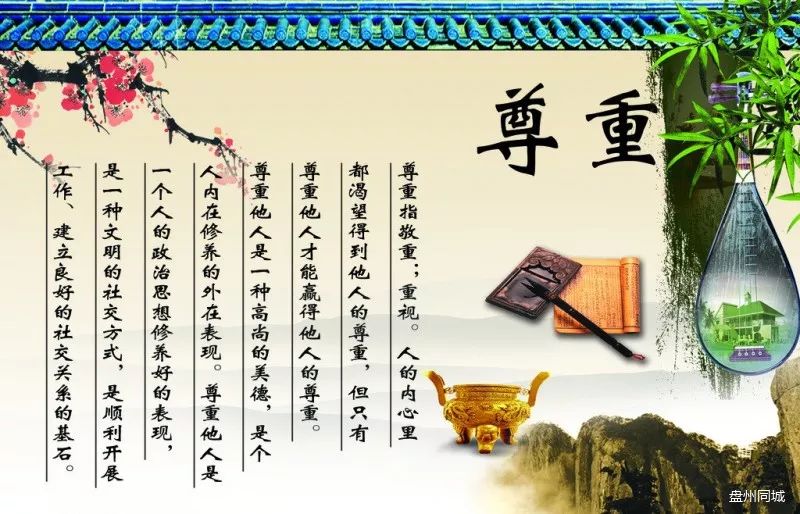 尊重
尊重指敬重；重视。人的内心里
都渴望得到他人的尊重，但只有
尊重他人才能赢得他人的尊重。
尊重他人是一种高尚的美德，是个
人内在修养的外在表现。尊重他人是
一个人的政治思想修养好的表现，
是一种文明的社交方式，是顺利开展
工作、建立良好的社交关系的基石。
盘州同城